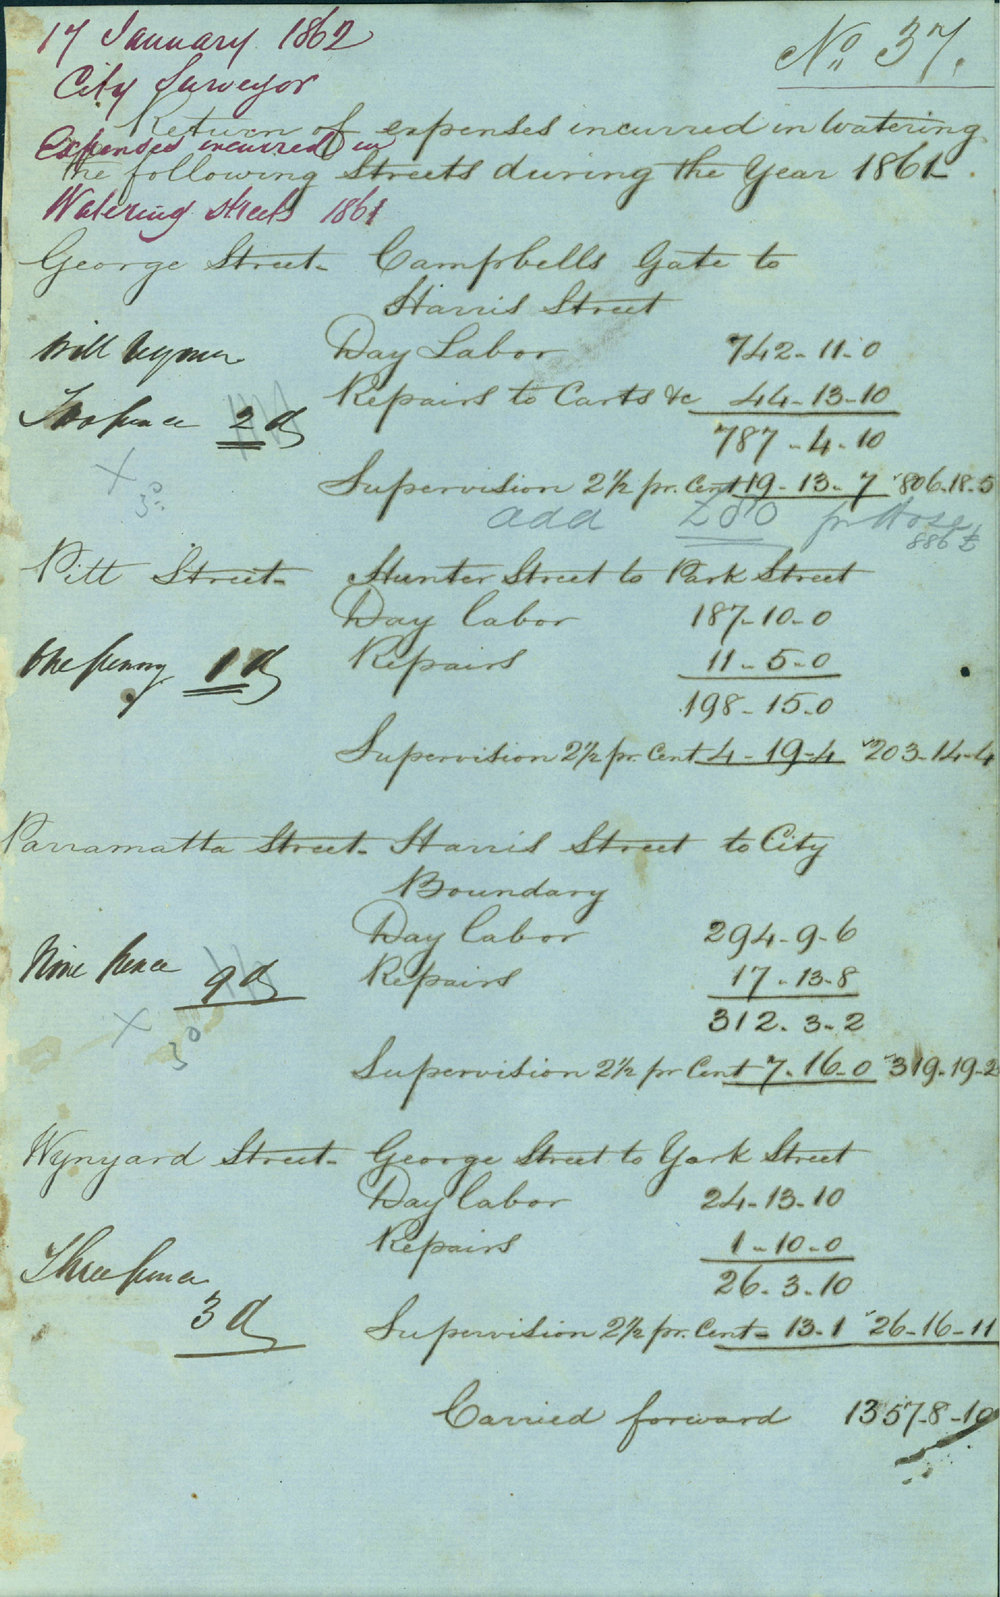 17 January 1862
No. 37.
City Surveyor
Return of expenses incurred in Watering
Expenses incurred in
the following Streets during the Year 1861.
Watering Streets 1861
George Street - Campbells Gate to
Harris Street
Day Labor 742-11-0
Repairs to Carts &c 44-13-10
Twopence 2d
787-4-10
Supervision 2½ pr. Cent 19-13-7 806.18.5
add £80 for Hose
886£
Pitt Street - Hunter Street to Park Street
Day labor 187-10-0
One penny 1d Repairs 11-5-0
198-15-0
Supervision 2½ pr. Cent 4-19-4 203-14-4
Parramatta Street - Harris Street to City
Boundary
Day labor 294-9-6
Nine Pence 9d Repairs 17-13-8
X 30 312.3-2
Supervision 2½ pr Cent 7-16-0 319-19-2
Wynyard Street - George Street to York Street
Day labor 24-13-10
Repairs 1-10-0
Three pence 26.3.10
3d Supervision 2½ pr. Cent - 13-1 26-16-11
Carried forward 1357-8-10